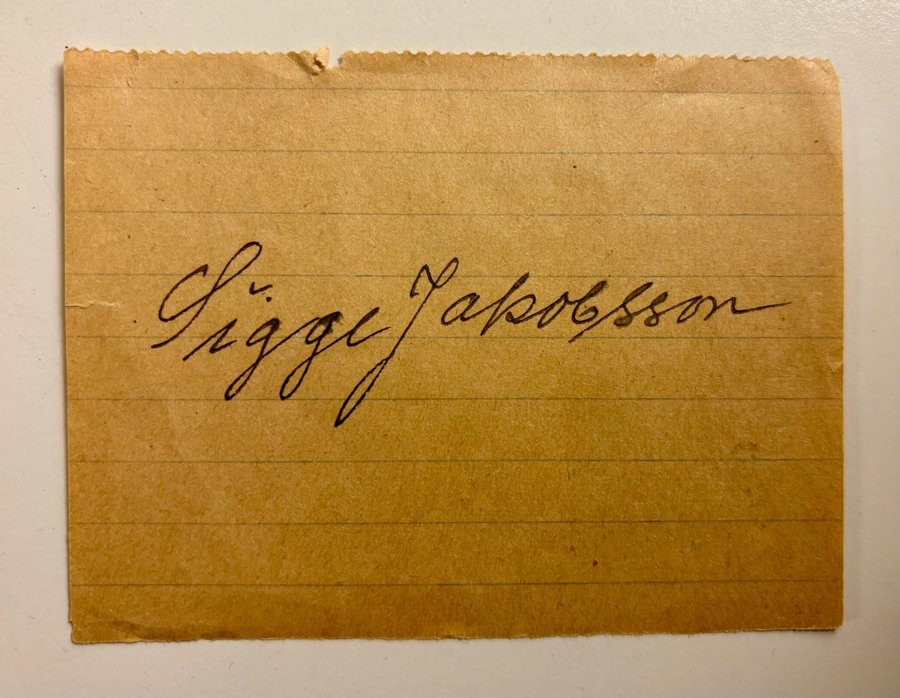 Sigge Jakobsson